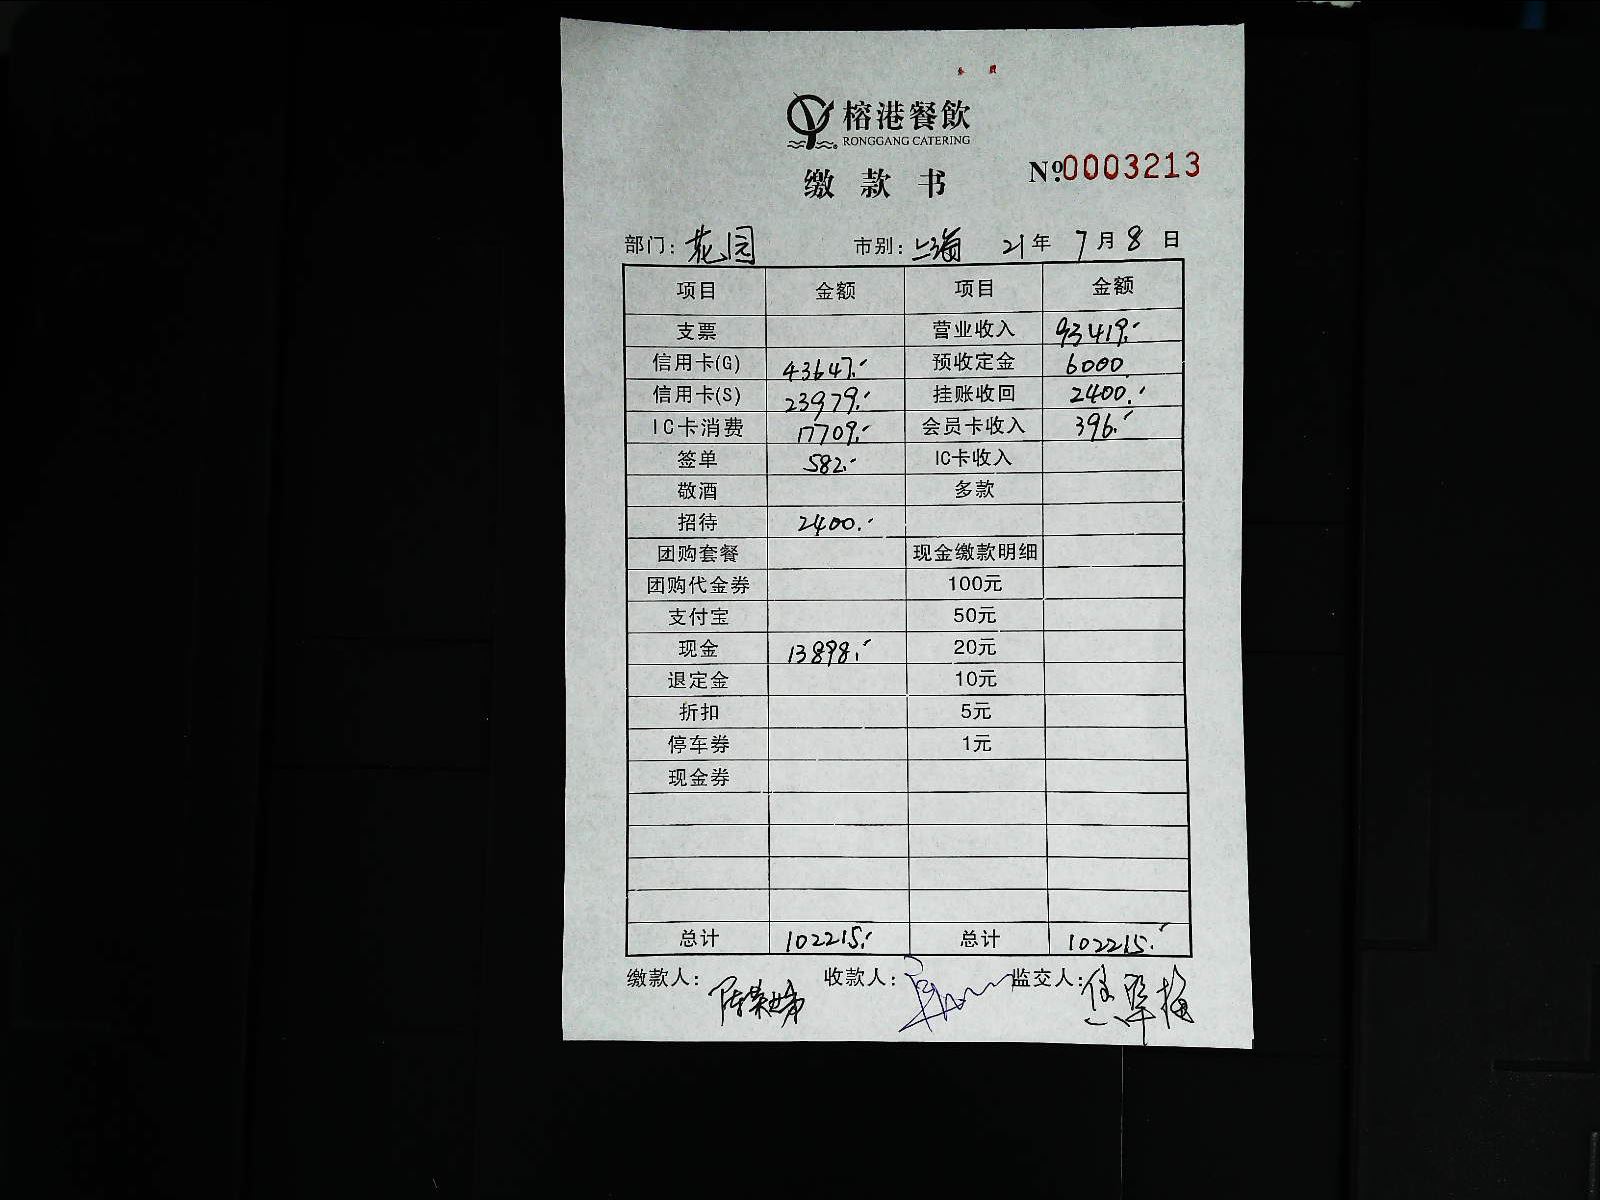 榕港餐飲
RONGGANG CATERING
缴款书 №0003213
部门: 花园 市别: 上海 21年 7月 8日
项目 金额 项目 金额
支票 营业收入 93419.-
信用卡(G) 43647.- 预收定金 6000
信用卡(S) 23979.- 挂账收回 2400.-
IC卡消费 17709.- 会员卡收入 396.-
签单 582.- IC卡收入
敬酒 多款
招待 2400.-
团购套餐 现金缴款明细
团购代金券 100元
支付宝 50元
现金 13898.- 20元
退定金 10元
折扣 5元
停车券 1元
现金券
总计 102215.- 总计 102215.-
缴款人: 收款人: 监交人: